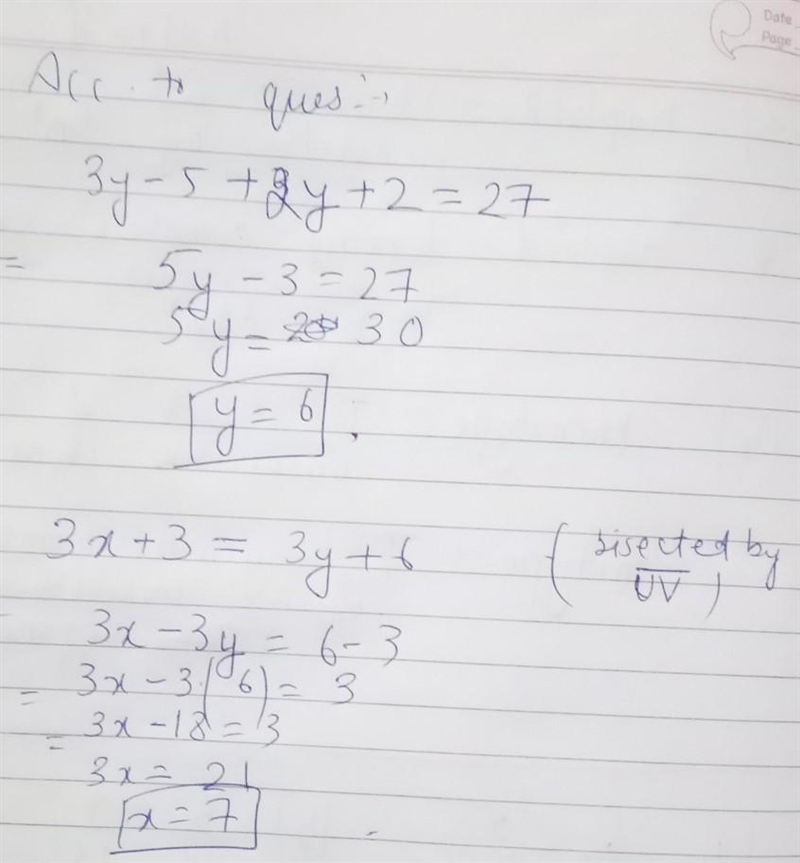 Date
Page
Acc. to ques:-
3y - 5 + 2y + 2 = 27
= 5y - 3 = 27
5y = 30
y = 6 .
3x + 3 = 3y + 6 (bisected by
UV)
3x - 3y = 6 - 3
= 3x - 3(6) = 3
= 3x - 18 = 3
3x = 21
x = 7